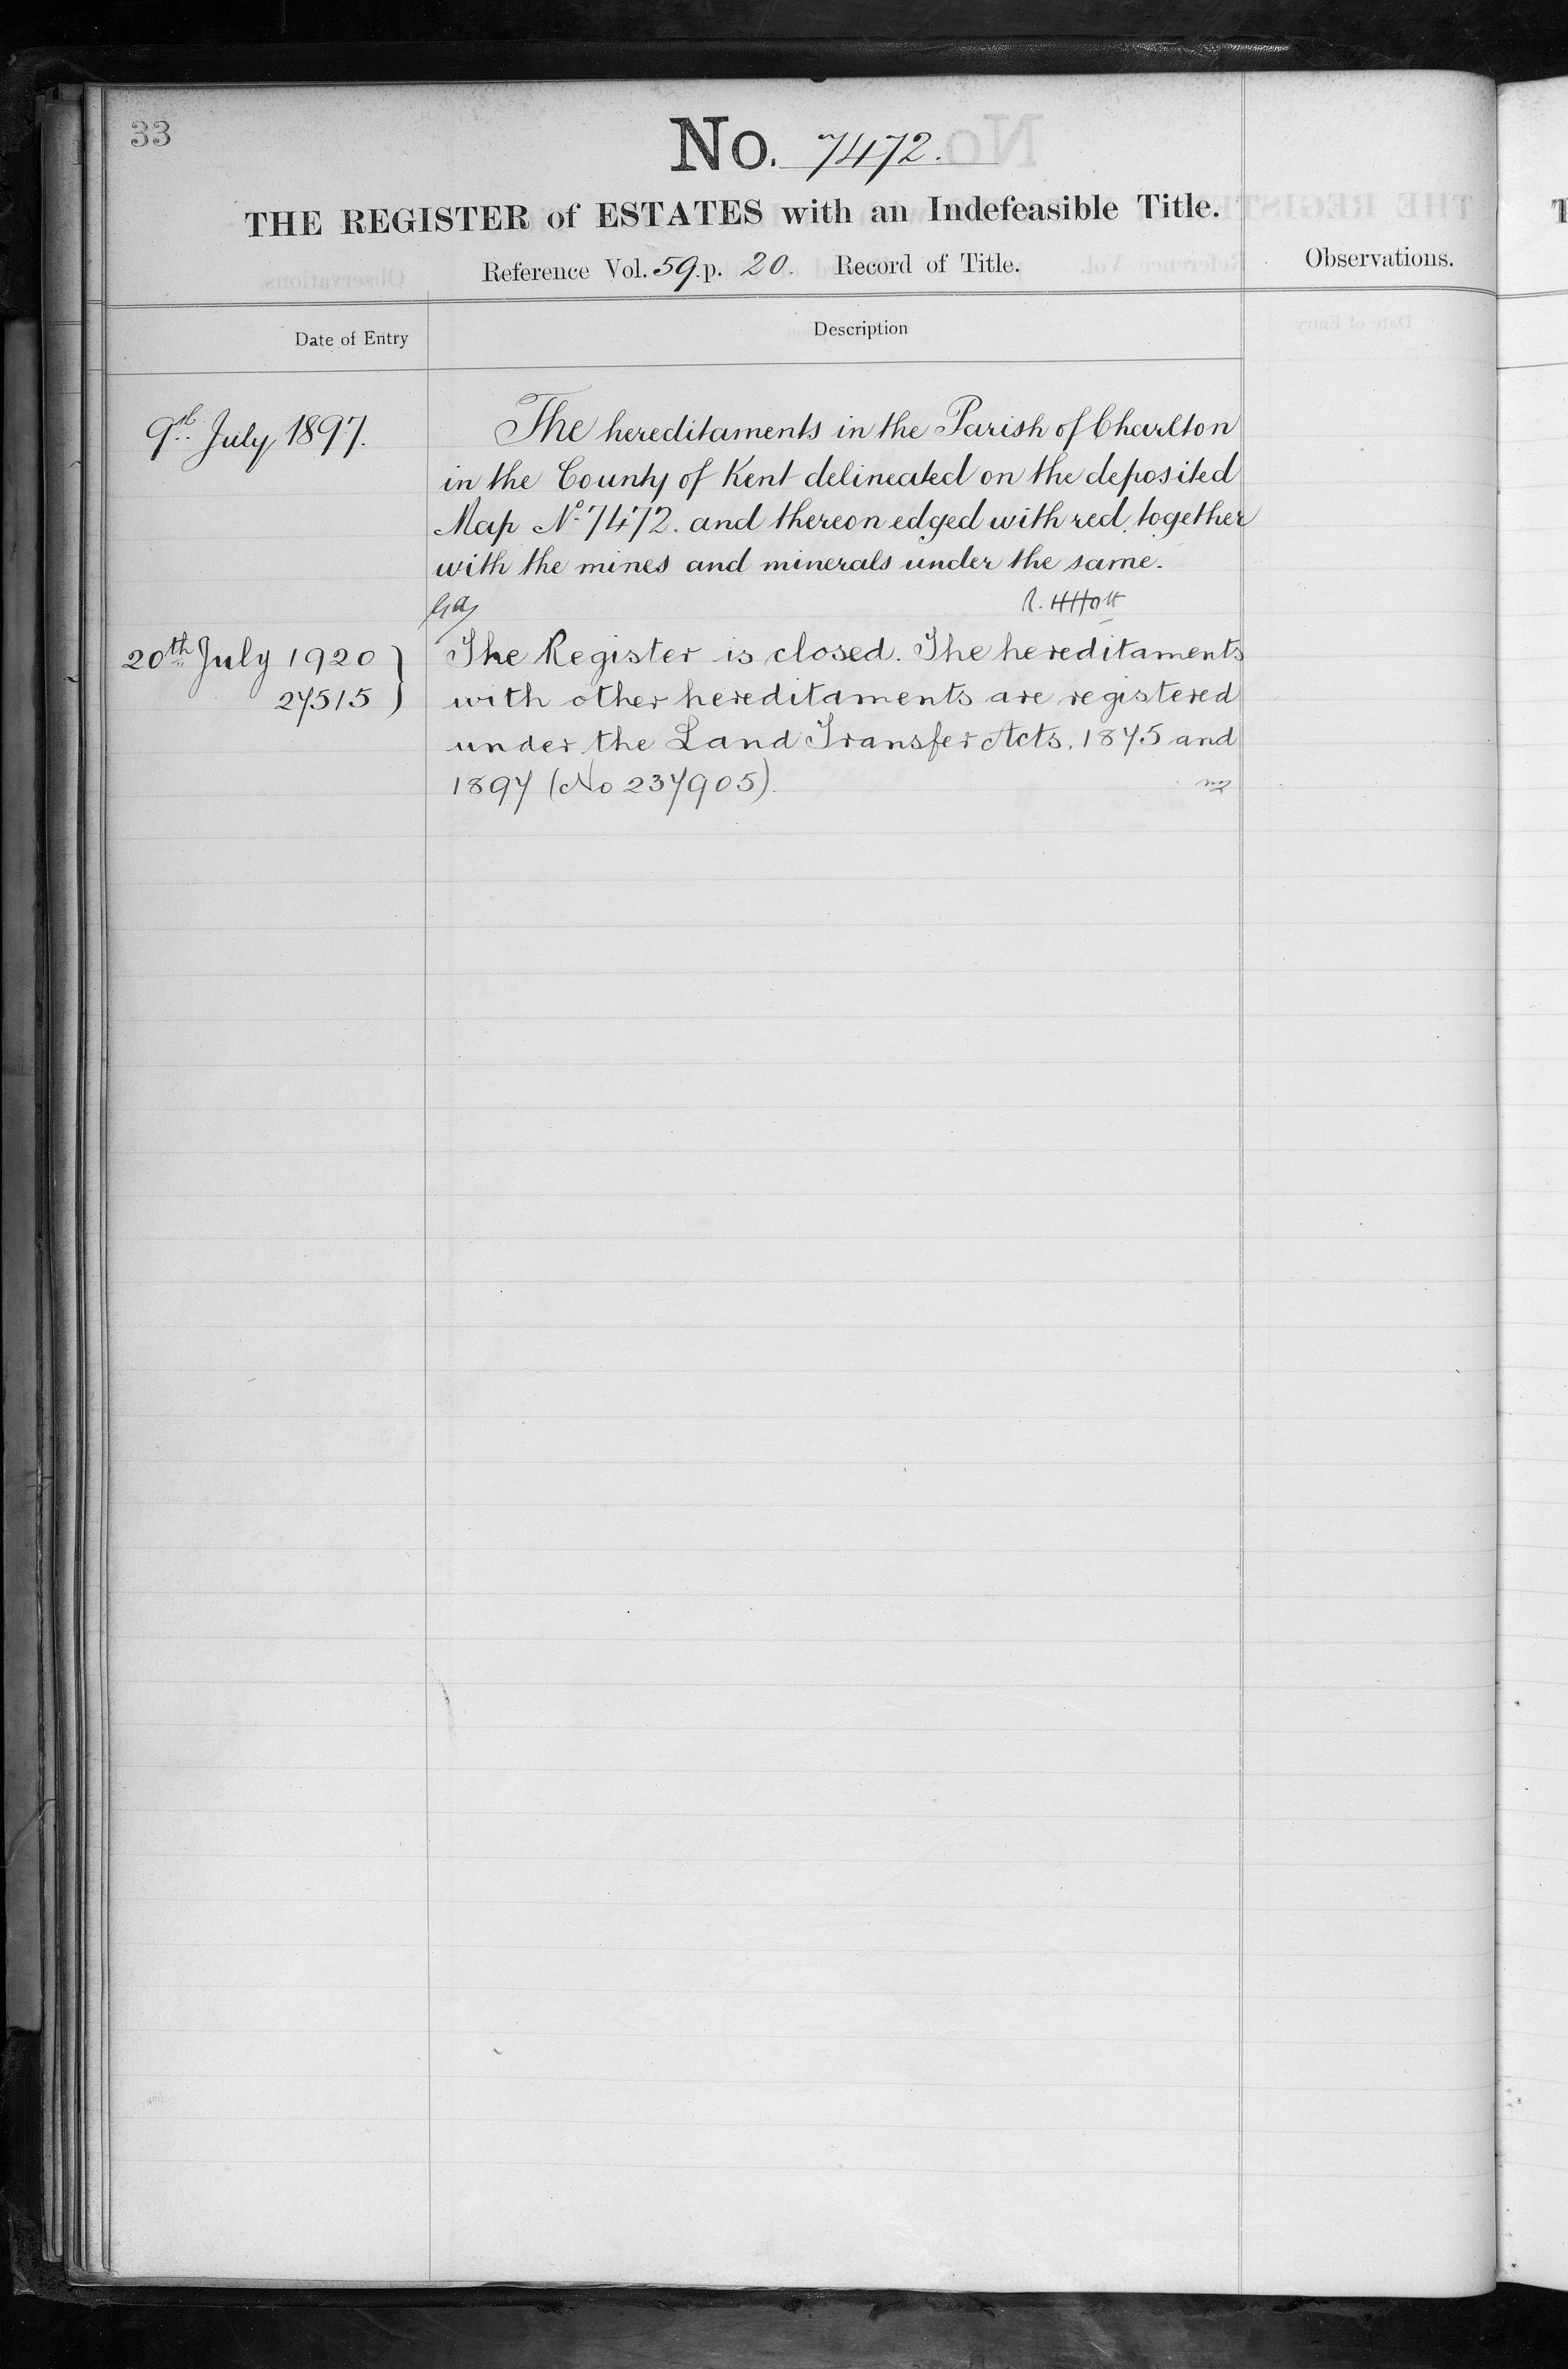 33
No. 7472.
THE REGISTER of ESTATES with an Indefeasible Title.
Reference Vol. 59. p. 20. Record of Title.
Observations.
Date of Entry
Description
9th July 1897.
The hereditaments in the Parish of Charlton
in the County of Kent delineated on the deposited
Map No. 7472. and thereon edged with red, together
with the mines and minerals under the same.
20th July 1920
27515
The Register is closed. The hereditaments
with other hereditaments are registered
under the Land Transfer Acts, 1875 and
1897 (No 237905).